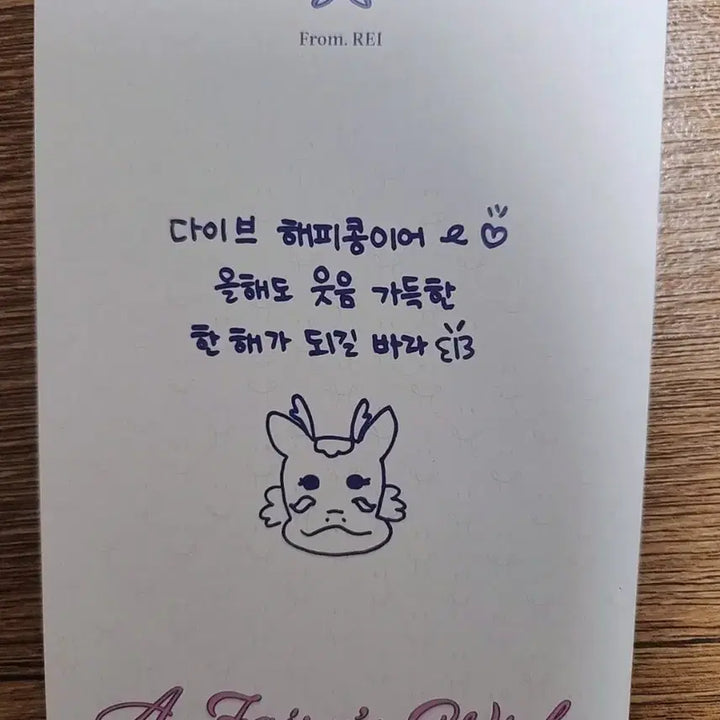 From. REI
다이브 해피콩이어
올해도 웃음 가득한
한 해가 되길 바라
A Fairy's Wish